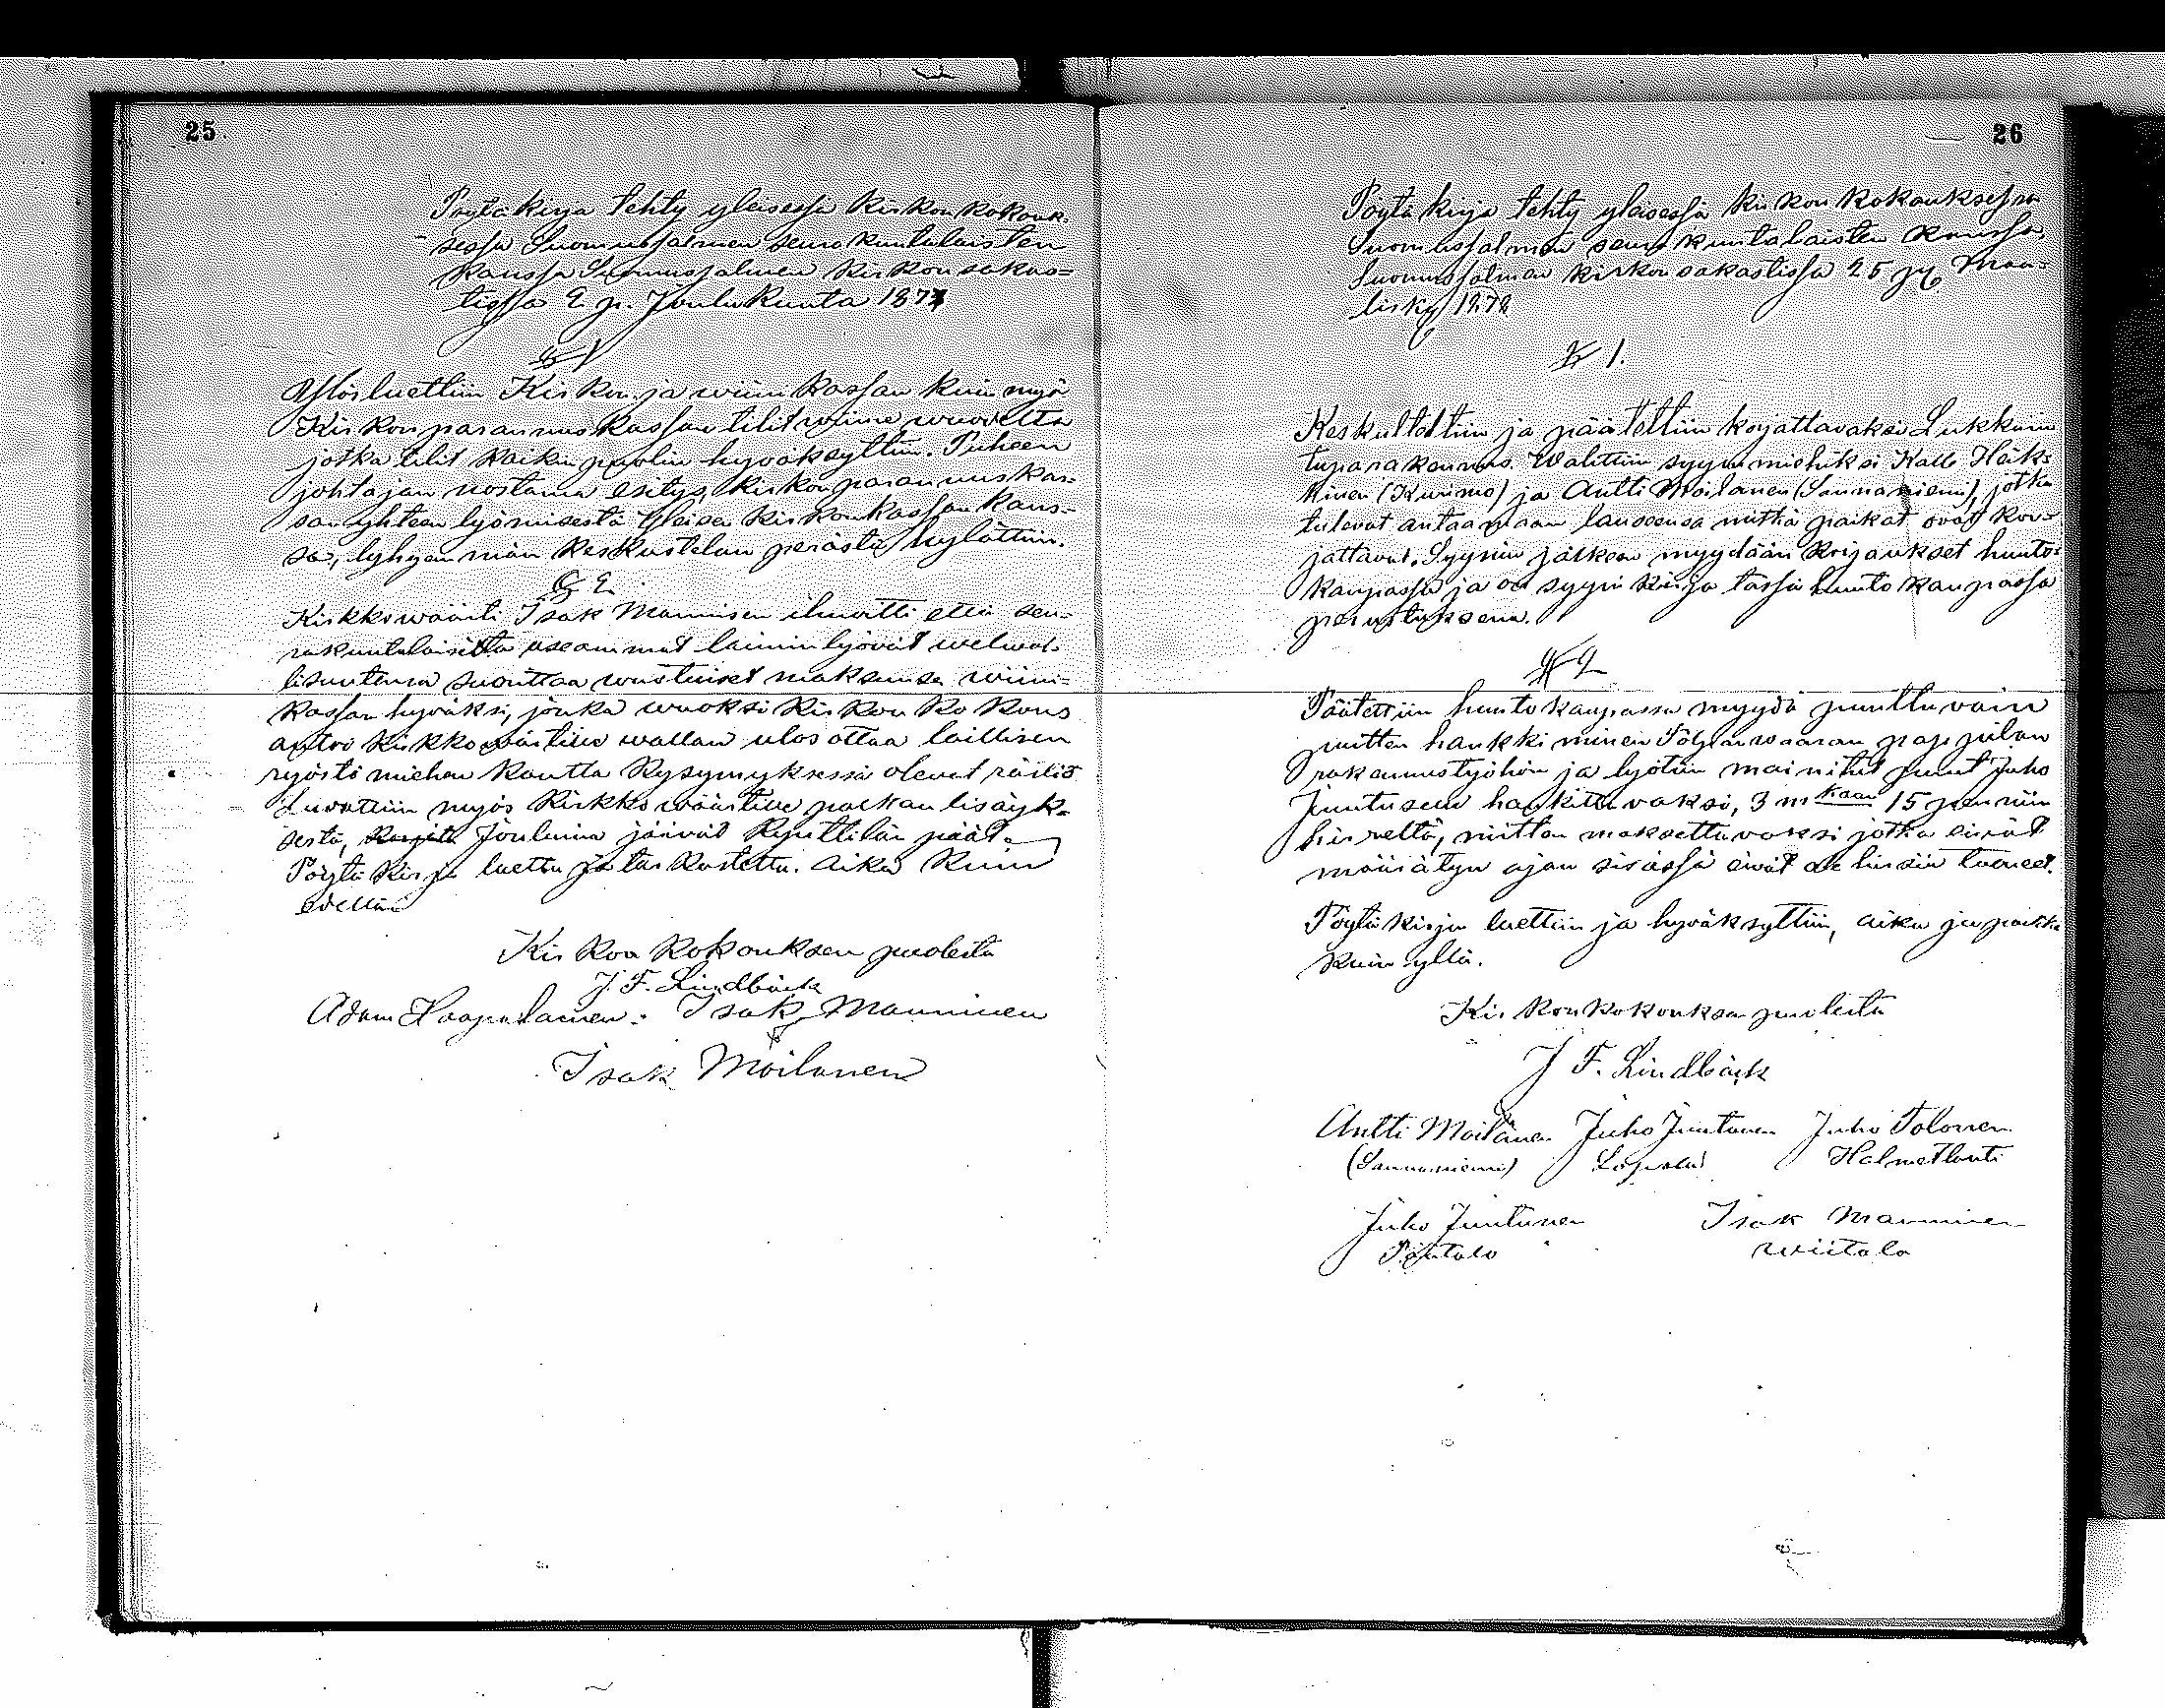 25
Pöytäkirja tehty yleisessä Kirkonkokouk-
sessa Suomussalmen seurakuntalaisten
kanssa Suomussalmen Kirkon sakas=
tissa 2 p. Joulukuuta 1871
§ 1
Ylösluettiin Kirkon ja wiini kassan kuin myö
Kirkon parannus kassan tilit wiime wuodelta
jotka tilit kaikin puolin hyväksyttiin. Puheen
johtajan nostama esitys, kirkon parannus kas=
san yhteen lyömisestä yleisen Kirkonkassan kans=
sa, lyhyen keskustelun perästä hylättiin.
§ 2.
Kirkkowäärti Isak Manninen ilmoitti että seu=
rakuntalaisista useammat laimin lyövät welwol=
lisuutensa suorittaa wuotuiset maksunsa wiini=
kassan hyväksi, jonka wuoksi Kirkon Kokous
antoi Kirkkowäärtille wallan ulos ottaa laillisen
ryöstömiehen kautta Kysymyksessä olevat rästiö
Luvattiin myös Kirkkowäärtille palkan lisäyk=
sestä, Jouluina jäivät
Pöytäkirja luettu ja tarkastettu. Aika kuin
edellä
Kirkon Kokouksen puolesta
J. F. Lindbäck
Adam Haapalainen. Isak Manninen
Isak Moilanen
26
Pöytäkirja tehty yleisessä kirkon kokouksessa
Suomussalmen seurakuntalaisten kanssa
Suomussalmen kirkon sakastissa 25 p. Maa=
lisk. 1872
§ 1.
Keskusteltiin ja päätettiin korjattavaksi Lukkarin
tuparakennus. Walittiin syynimiehiksi Kalle Heik=
kinen (Kurimo) ja Antti Moilanen (Sannaniemi), jotka
tulevat antaamaan lauseensa mitkä paikat ovat kor=
jattavat. Syynin jälkeen myydään korjaukset huuto=
kaupassa ja on syyni kirja tässä huuto kaupassa
perustuksena.
§ 2
Päätettiin huutokaupassa myydä puuttuvain
puitten hankkiminen Pöljänwaaran pappilan
rakennustyöhön ja lyötiin mainitut puut Juho
Juntusen hankittavaksi, 3 mkaan 15 penniin
hirreltä, niitten maksettavaksi jotka eivät
määrätyn ajan sisässä eivät ole hirsiä tuoneet.
Pöytäkirja luettiin ja hyväksyttiin, aika ja paikka
kuin yllä.
Kirkonkokouksen puolesta
J F. Lindbäck
Antti Moilanen Juho Juntunen Juho Tolonen
(Sannaniemi) Halmetlahti
Juho Juntunen Isak Manninen
Wiitala